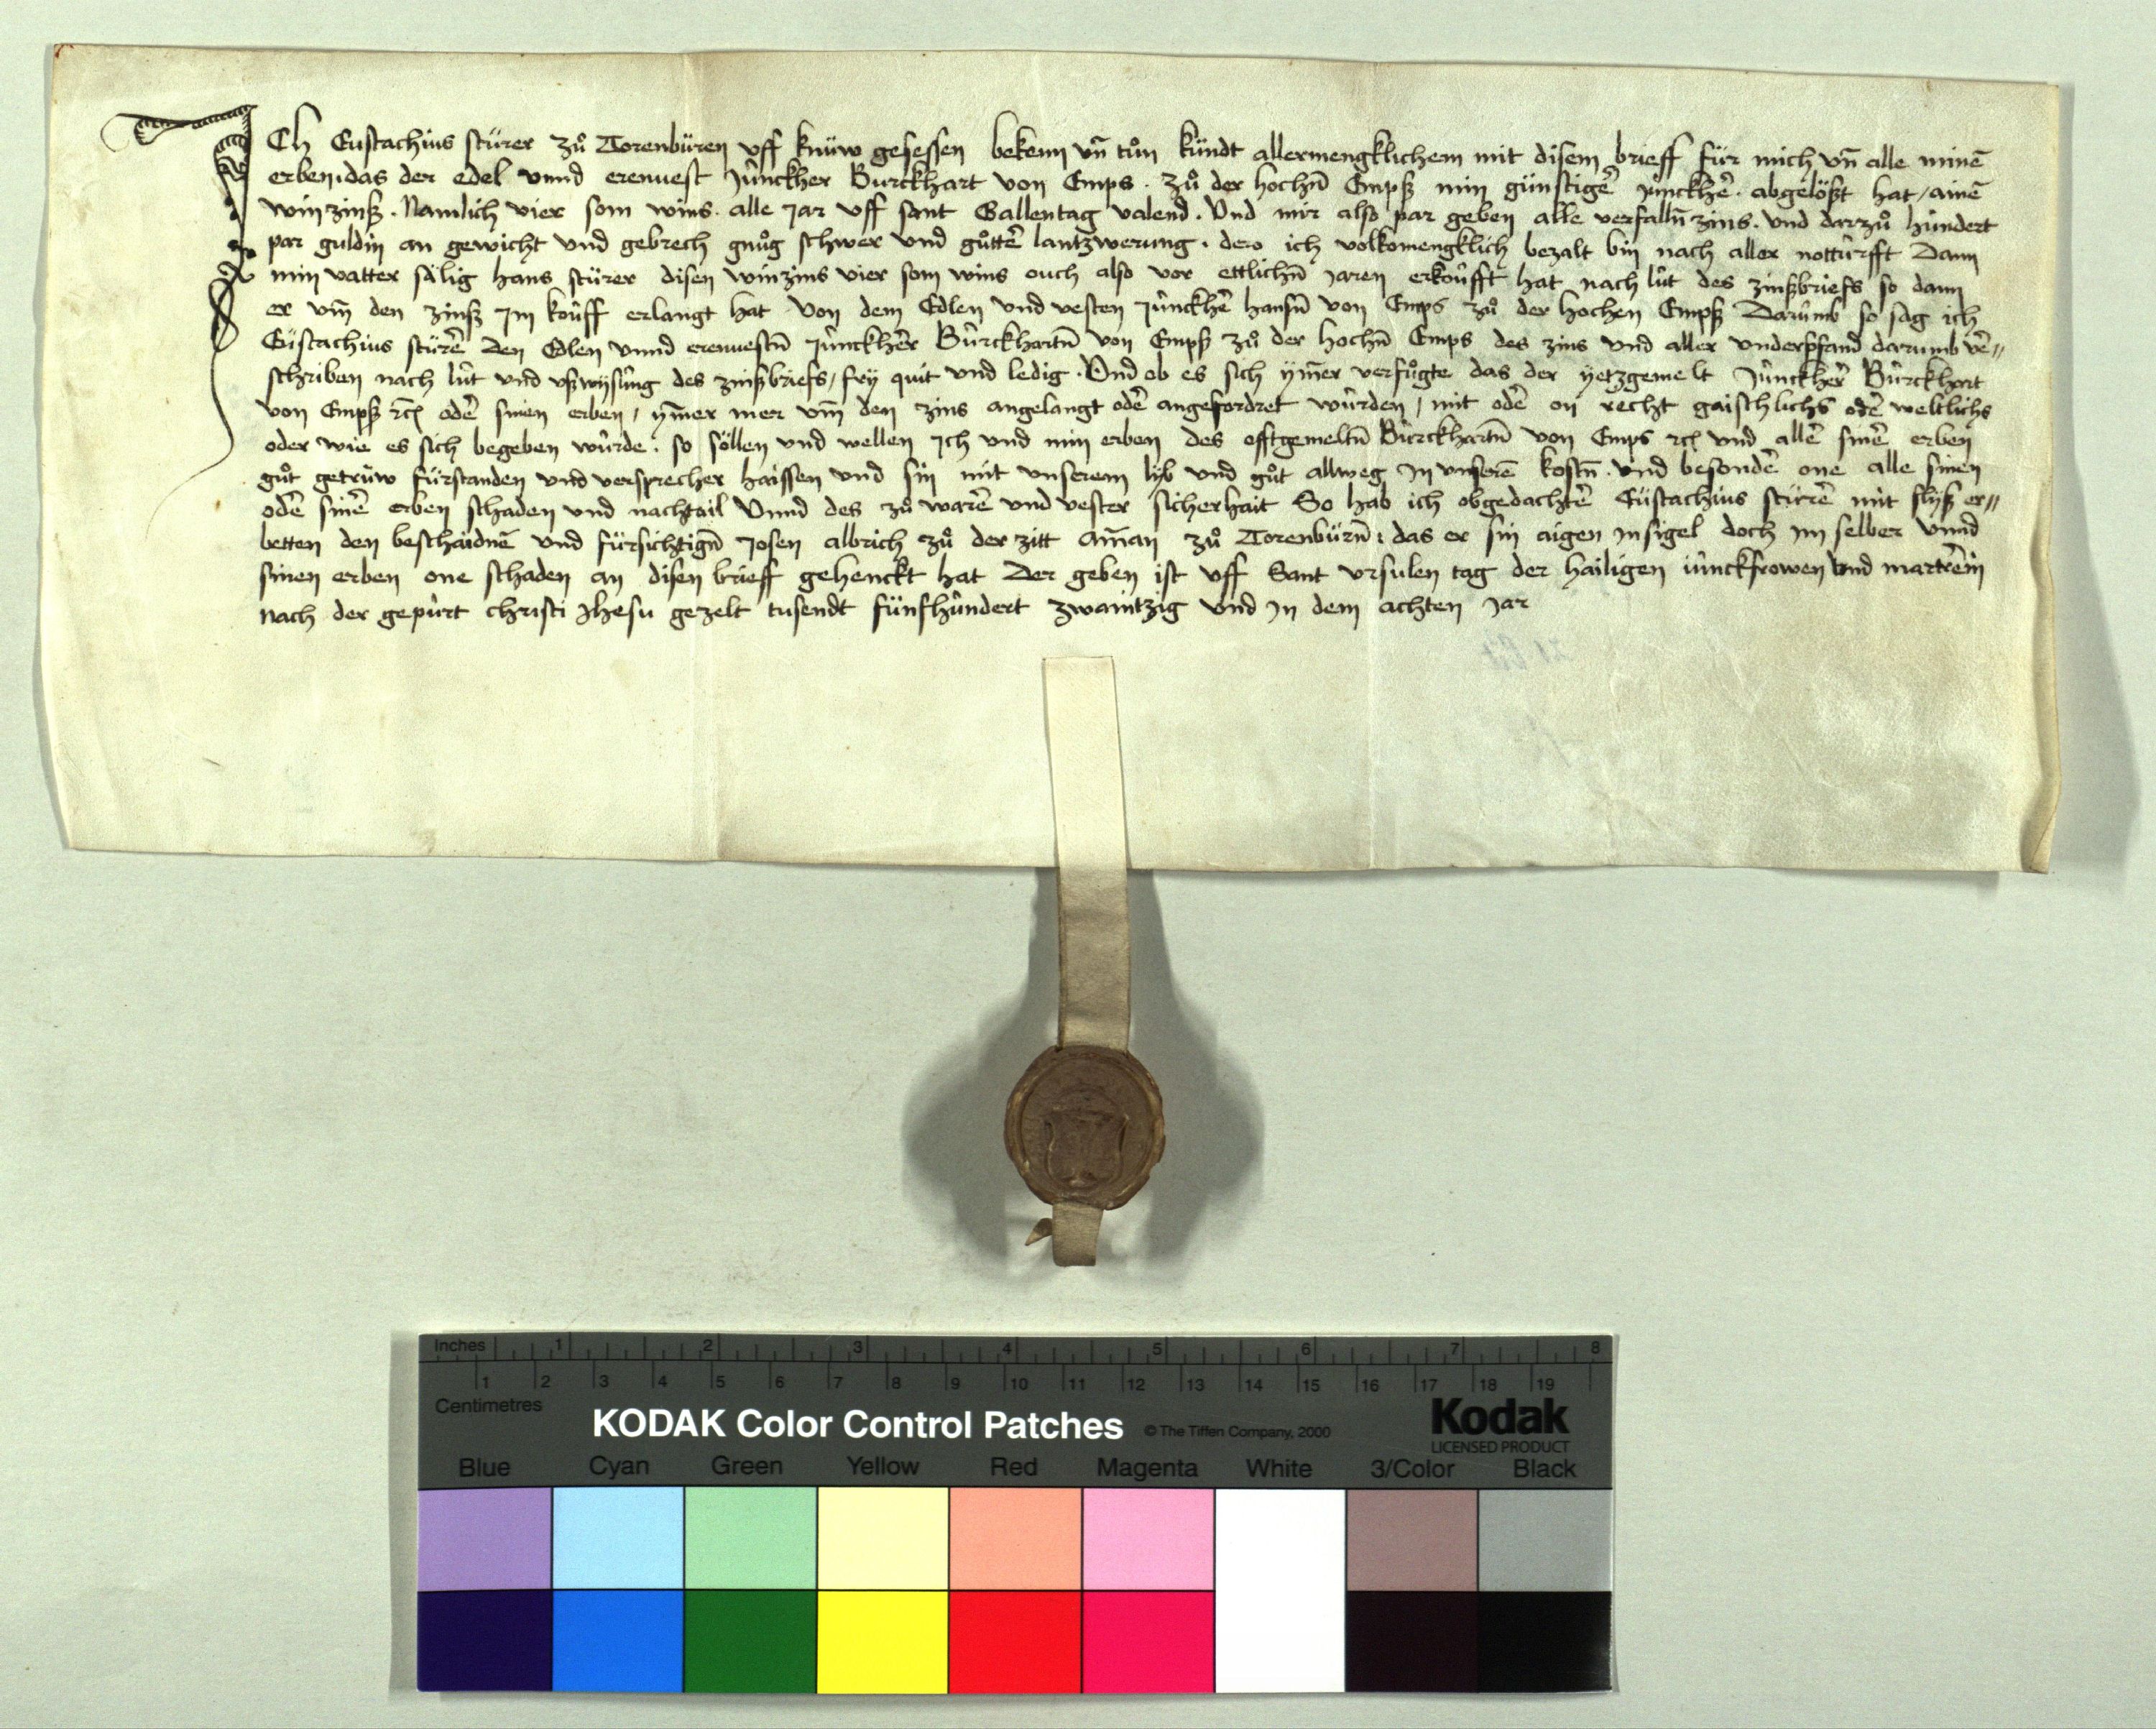 ICh Eustachius stürer zů Torenbüren vff knüw gesessen bekenn vn̄ tůn kündt allermengklichem mit disem brieff für mich vn̄ alle minē
erben das der edel vnnd erenuest Jûnckher Burckhart von Emps. zů der hochn̄ Empß min günstigē jûnckhē. abgelößt hat / ainē
winzinß. Namlich vier som wins. alle Jar vff sant Gallentag valend. Vnd mir also par geben alle verfalln̄ zins. vnd darzů hundert
par guldin an gewicht vnd gebrech gnůg schwer vnd gůttē lantzwerung. dero ich volkomengklich bezalt bin nach aller nottûrfft Dann
min vatter sälig hans stürer disen winzins vier som wins ouch also vor ettlichn̄ Jaren erkoûfft hat nach lût des zinßbriefs so dann
er vm̄ den zinß Im koûff erlangt hat von dem Edlen vnd vesten Jûnckhē hansn̄ von Emps zů der hochen Empß Darûmb so sag ich
Eüstachius stürē Den Edlen vnnd erenuestn̄ Jûnckhēr Bûrckhartn̄ von Empß zů der hochn̄ Emps des zins vnd aller underpfand darumb vē„
schriben nach lût vnd vßwysûng des zinßbriefs / fry quit vnd ledig. Vnd ob es sich ym̄er verfůgte das der yetzgemelt Jûnckhēr Bûrckhart
von Empß ꝛc̄ odē sinen erben / ym̄er mer vm̄ den zins angelangt odē angefordret wûrden / mit odē on recht gaischlichs odē weltlichs
oder wie es sich begeben wûrde. so söllen vnd wellen Ich vnd min erben des offtgemeltn̄ Bûrckhartn̄ von Emps ꝛc̄ vnd allē sinē erben
gůt getrüw fürstanden vnd versprecher haissen vnd sin mit vnserem lyb vnd gůt allweg In vnserē kostn̄. vnd besondē one alle sinen
odē sinē erben schaden vnd nachtail Vnnd des zů warē vnd vester sicherhait So hab ich obgedachtē Eüstachius stürē mit flyß er„
betten den beschaidnē vnd fürsichtign̄ Josen albrich zů der zitt am̄an zů Torenbürn̄: das er sin aigen Insigel doch Im selber vnnd
sinen erben one schaden an disen brieff gehenckt hat Der geben ist vff Sant vrsulen tag der hailigen iûnckfrowen vnd martrēin
nach der gepûrt christi Jhesu gezelt tusendt fünfhûndert zwaintzig vnd In dem achten Jar
Inches 1 2 3 4 5 6 7 8
1 2 3 4 5 6 7 8 9 10 11 12 13 14 15 16 17 18 19
Centimetres
KODAK Color Control Patches © The Tiffen Company, 2000 Kodak
LICENSED PRODUCT
Blue Cyan Green Yellow Red Magenta White 3/Color Black